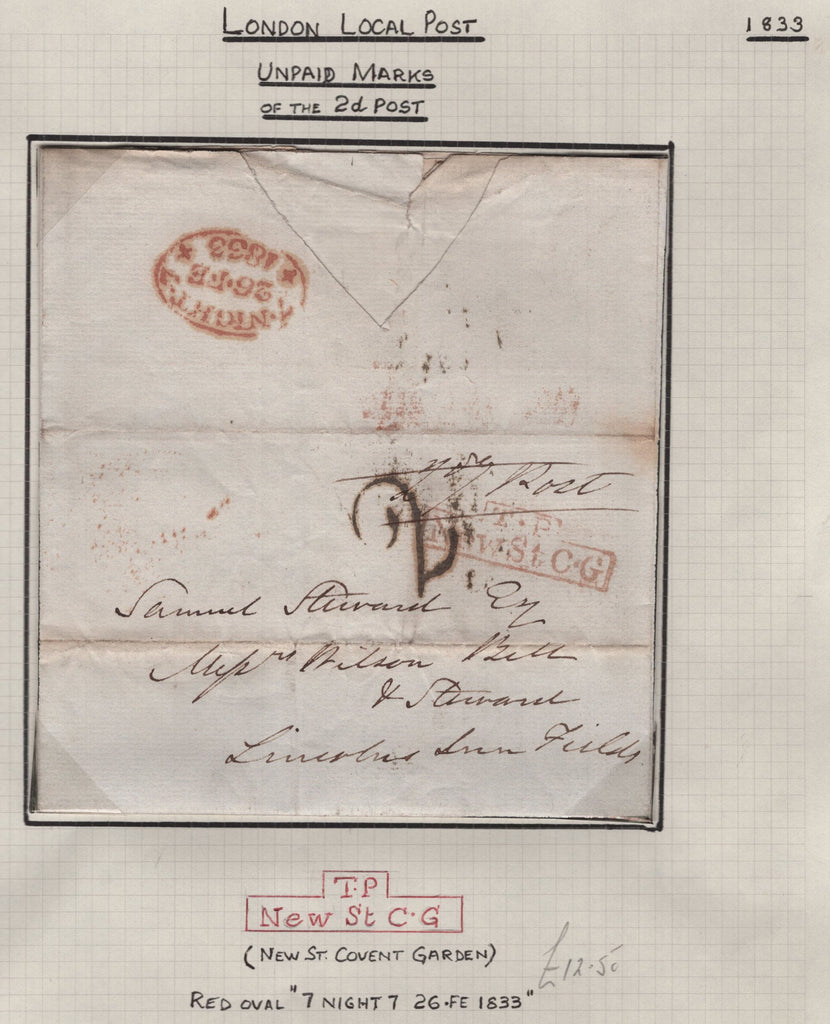 LONDON LOCAL POST
1833
UNPAID MARKS
OF THE 2d POST
1833
26·FE
7·NIGHT·7
Post
2
T·P
New St C·G
Samuel Steward Esq
Messrs Wilson Bell
& Steward
Lincolns Inn Fields
T·P
New St C·G
(NEW ST. COVENT GARDEN)
£12·50
RED OVAL "7 NIGHT 7 26·FE 1833"